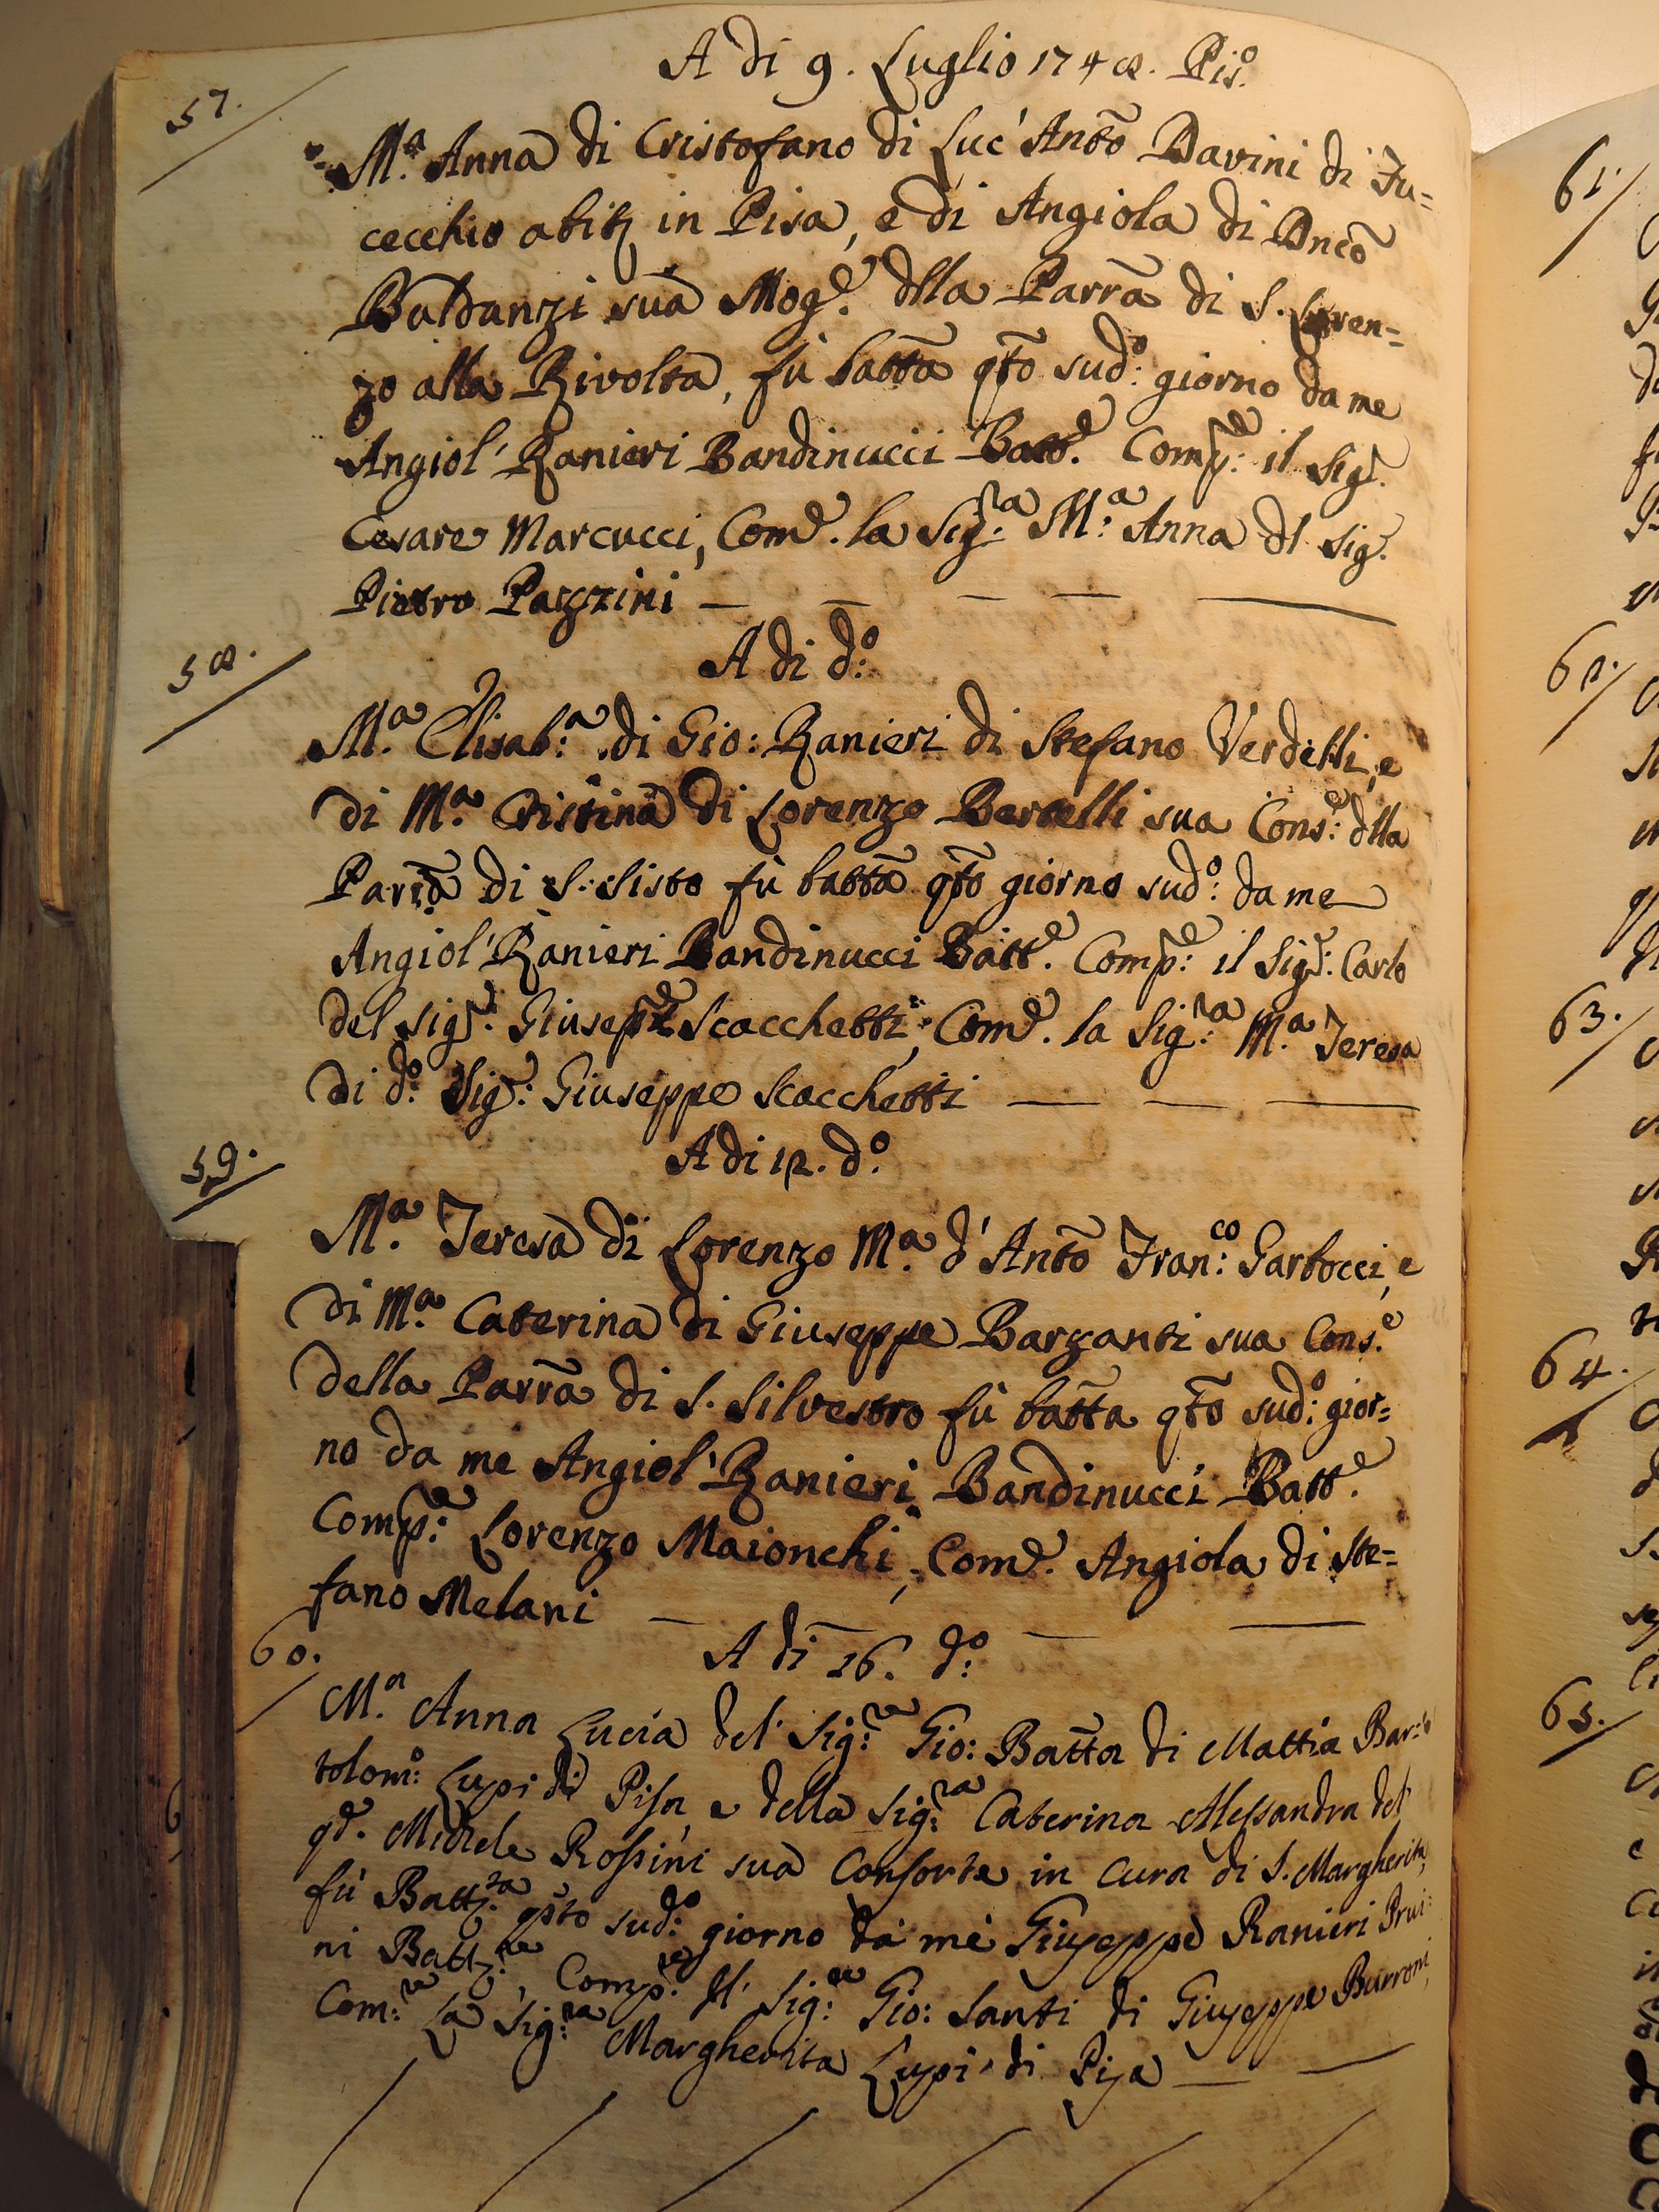 A di 9. Luglio 1748. Pis.º
57.
M.ª Anna di Cristofano di Luc' Antõ Davini di Fu=
cecchio abitͤ in Pisa, e di Angiola di Dncõ
Baldanzi sua Mog.ᵉ dlla Parrã di S. Loren=
zo alla Rivolta, fù battã qt̃o sud.º giorno da me
Angiol' Ranieri Bandinucci Batt.ᵉ Comp.ᵉ il Sig.ʳ
Cesare Marcucci, Com.ᵉ la Sig.ʳᵃ M.ª Anna dl Sig.ʳ
Pietro Pazzini
58.
A di d.º
M.ª Elisab.ª di Gio: Ranieri di Stefano Verdelli, e
di M.ª Cristina di Lorenzo Bertelli sua Cons.ᵉ dlla
Parrã di S. Sisto fù battã qt̃o giorno sud.º da me
Angiol' Ranieri Bandinucci Batt.ᵉ Comp.ᵉ il Sig.ʳ Carlo
del Sig.ʳ Giusep.ᵉ Scacchetti, Com.ᵉ la Sig.ʳᵃ M.ª Teresa
di d.º Sig.ʳ Giuseppe Scacchetti
59.
A di 12. d.º
M.ª Teresa di Lorenzo M.ª d' Antõ Fran.ᶜᵒ Garbocci, e
di M.ª Caterina di Giuseppe Barzanti sua Cons.ᵉ
della Parrã di S. Silvestro fù battã qt̃o sud.º gior=
no da me Angiol' Ranieri Bandinucci Batt.ᵉ
Comp.ᵉ Lorenzo Maionchi, Com.ᵉ Angiola di Ste=
fano Melani
60.
A di 16. d.º
M.ª Anna Lucia del Sig.ʳᵉ Gio: Battã di Mattia Bar=
tolom.º Lupi di Pisa, e della Sig.ʳᵃ Caterina Alessandra del
qd.ᵐ Michele Rossini sua Consorte in Cura di S. Margherita,
fù Battz.ᵗᵃ qsto sud.º giorno da me Giuseppe Ranieri Prui=
ni Battz.ʳᵉ, Comp.ʳᵉ Il Sig.ʳᵉ Gio: Santi di Giuseppe Burroni,
Com.ʳᵉ La Sig.ʳᵃ Margherita Lupi di Pisa
61.
62.
63.
64.
65.